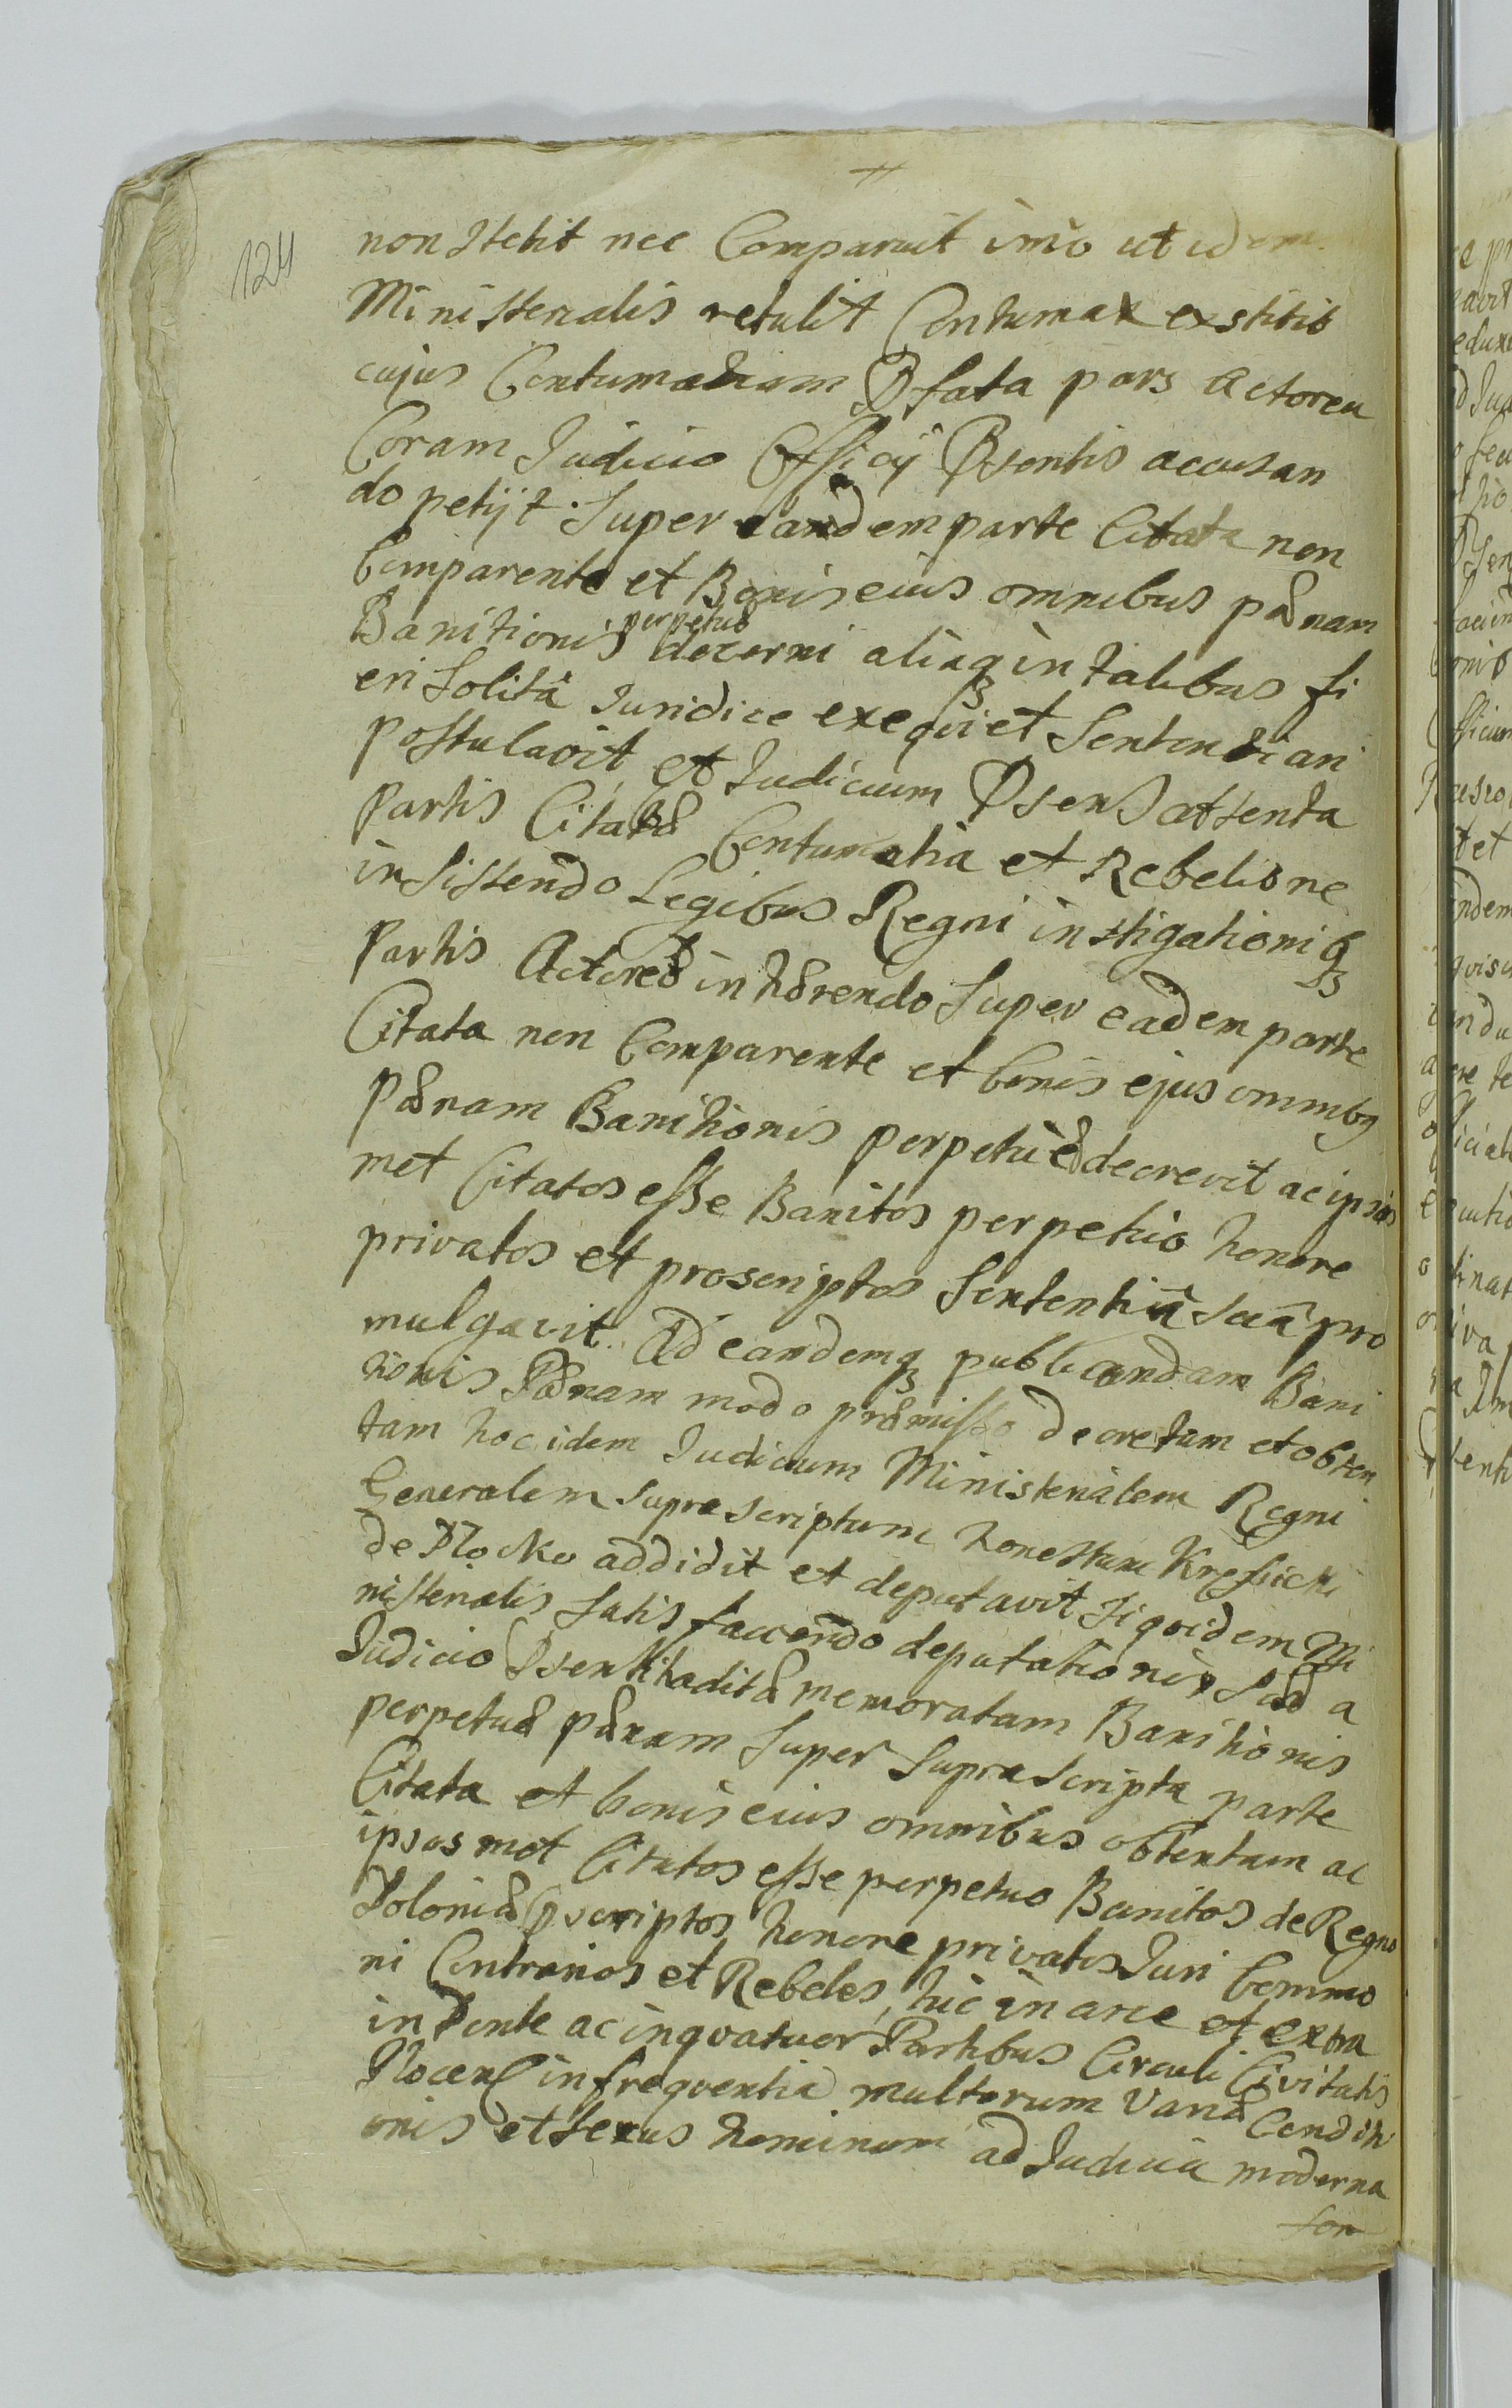 124
non stetit nec Comparuit imo ut idem
Ministerialis retulit Contumax exstitit
cujus Contumatiam Pfata pars Actorea
Coram Judicio Officij Psentis accusan
do petijt Super eandem parte Citata non
Comparente et Bonis eius omnibus pænam
perpetuæ
Banitionis decerni aliaq in talibus fi
eri Solita Juridice exequi et Sententiari
postulavit, et Judicium Psens attenta
Partis Citatæ Contumatia et Rebelione
insistendo Legibus Regni instigationiq
Partis Actoreæ inhærendo Super eadem parte
Citata non Comparente et bonis ejus omnibq
Pænam Banitionis perpetuæ decrevit ac ipsos
met Citatos esse Banitos perpetuo honore
privatos et proscriptos Sententia Sua pro
mulgavit. Ad eandemq publicandam Bani
tionis Pænam modo præmisso decretam et obten
tam hoc idem Judicium Ministerialem Regni
Generalem suprascriptum honestum
de Plocko addidit et deputavit siquidem Mi
nisterialis Satis faciendo deputationi Suæ a
Judicio Psenti traditæ memoratam Banitionis
perpetuæ pænam Super Suprascripta parte
Citata et bonis eius omnibus obtentam ac
ipsos met Citatos esse perpetuo Banitos de Regno
Poloniæ pscriptos honore privatos Juri Commu
ni Contrarios et Rebeles, hic in arce et extra
in Ponte ac in quatuor Partibus Circuli Civitatis
Plocens in frequentia multorum Variæ Conditi
onis et Sexus hominum ad Judicia moderna